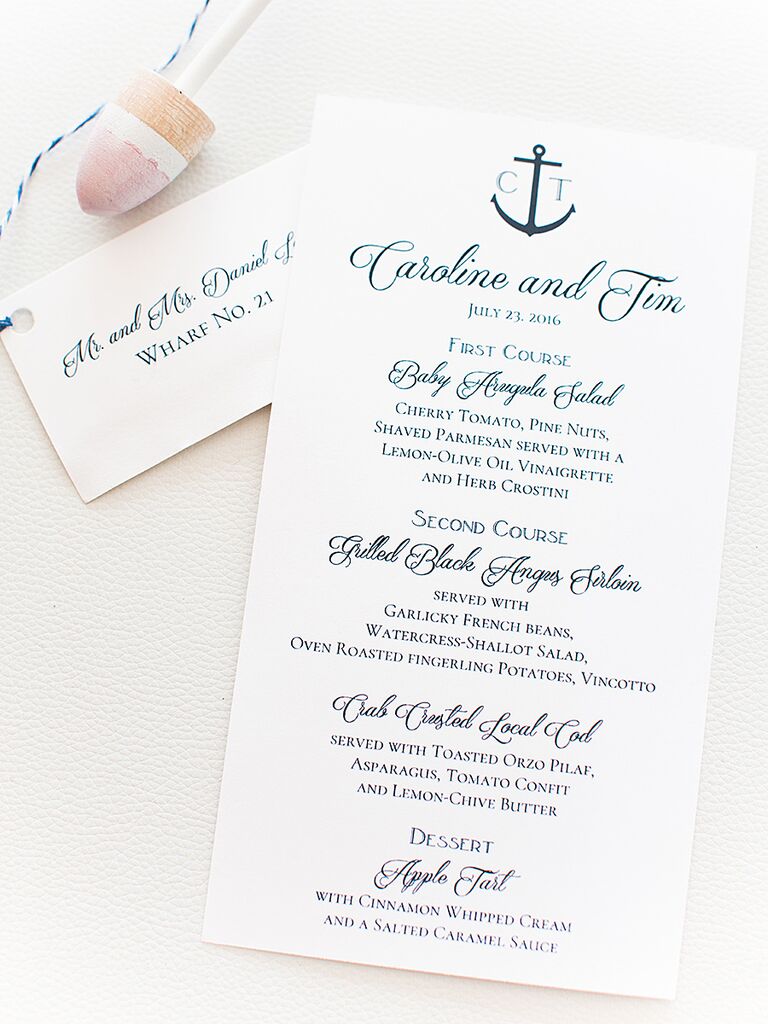 Mr. and Mrs. Daniel
Wharf No. 21
C T
Caroline and Tim
July 23. 2016
First Course
Baby Arugula Salad
Cherry Tomato, Pine Nuts,
Shaved Parmesan served with a
Lemon-Olive Oil Vinaigrette
and Herb Crostini
Second Course
Grilled Black Angus Sirloin
served with
Garlicky French beans,
Watercress-Shallot Salad,
Oven Roasted fingerling Potatoes, Vincotto
Crab Crusted Local Cod
served with Toasted Orzo Pilaf,
Asparagus, Tomato Confit
and Lemon-Chive Butter
Dessert
Apple Tart
with Cinnamon Whipped Cream
and a Salted Caramel Sauce